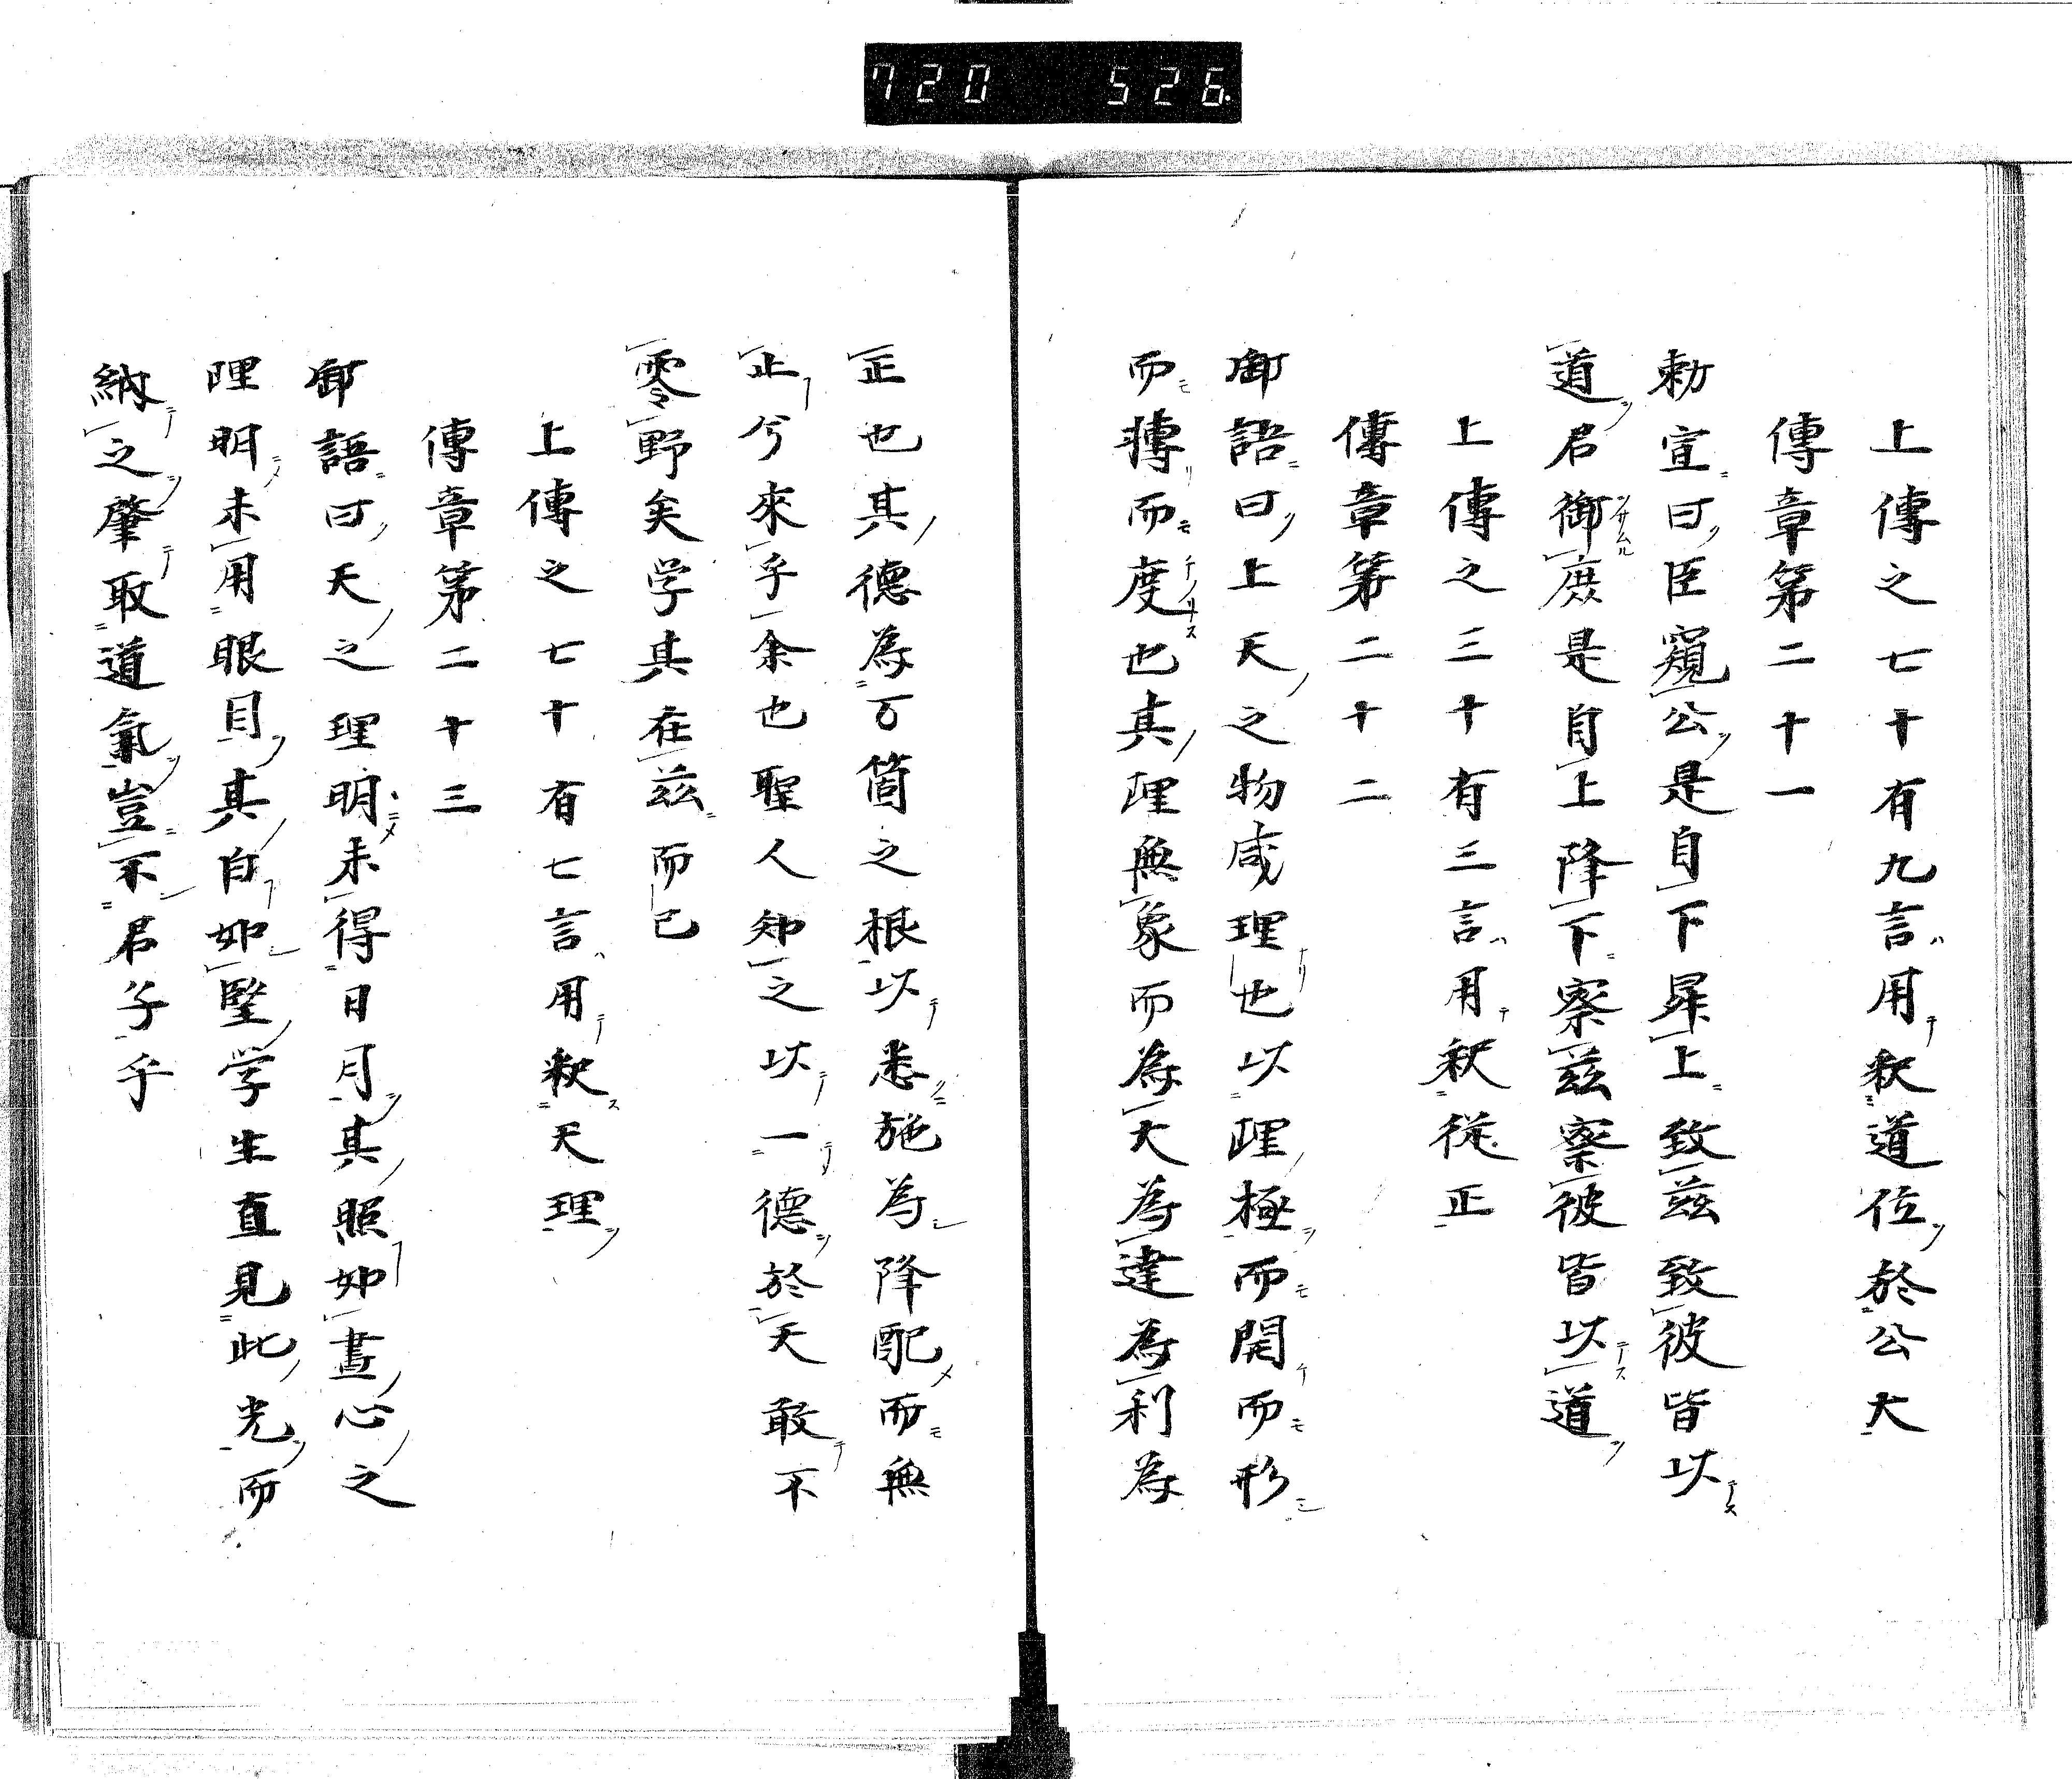 720 526
上傳之七十有九言用釈道位於公大
傳章第二十一
勅宣曰臣窺公是自下犀上致茲致彼皆以
道君御庶是自上降下察茲察彼皆以道
上傳之三十有三言用釈従正
傳章第二十二
御語曰上天之物咸理也以理極而開而形
而轉而度也其理無象而為大為達為利為
正也其德為万箇之根以悉施為降配而無
止兮來乎余也聖人知之以一德於天敢不
零野矣学其在茲而已
上傳之七十有七言用釈天理
傳章第二十三
御語曰天之理明未得日月其照如晝心之
理明未用眼目其白如堅学生直見此光而
納之肇取道氣豈不君子乎